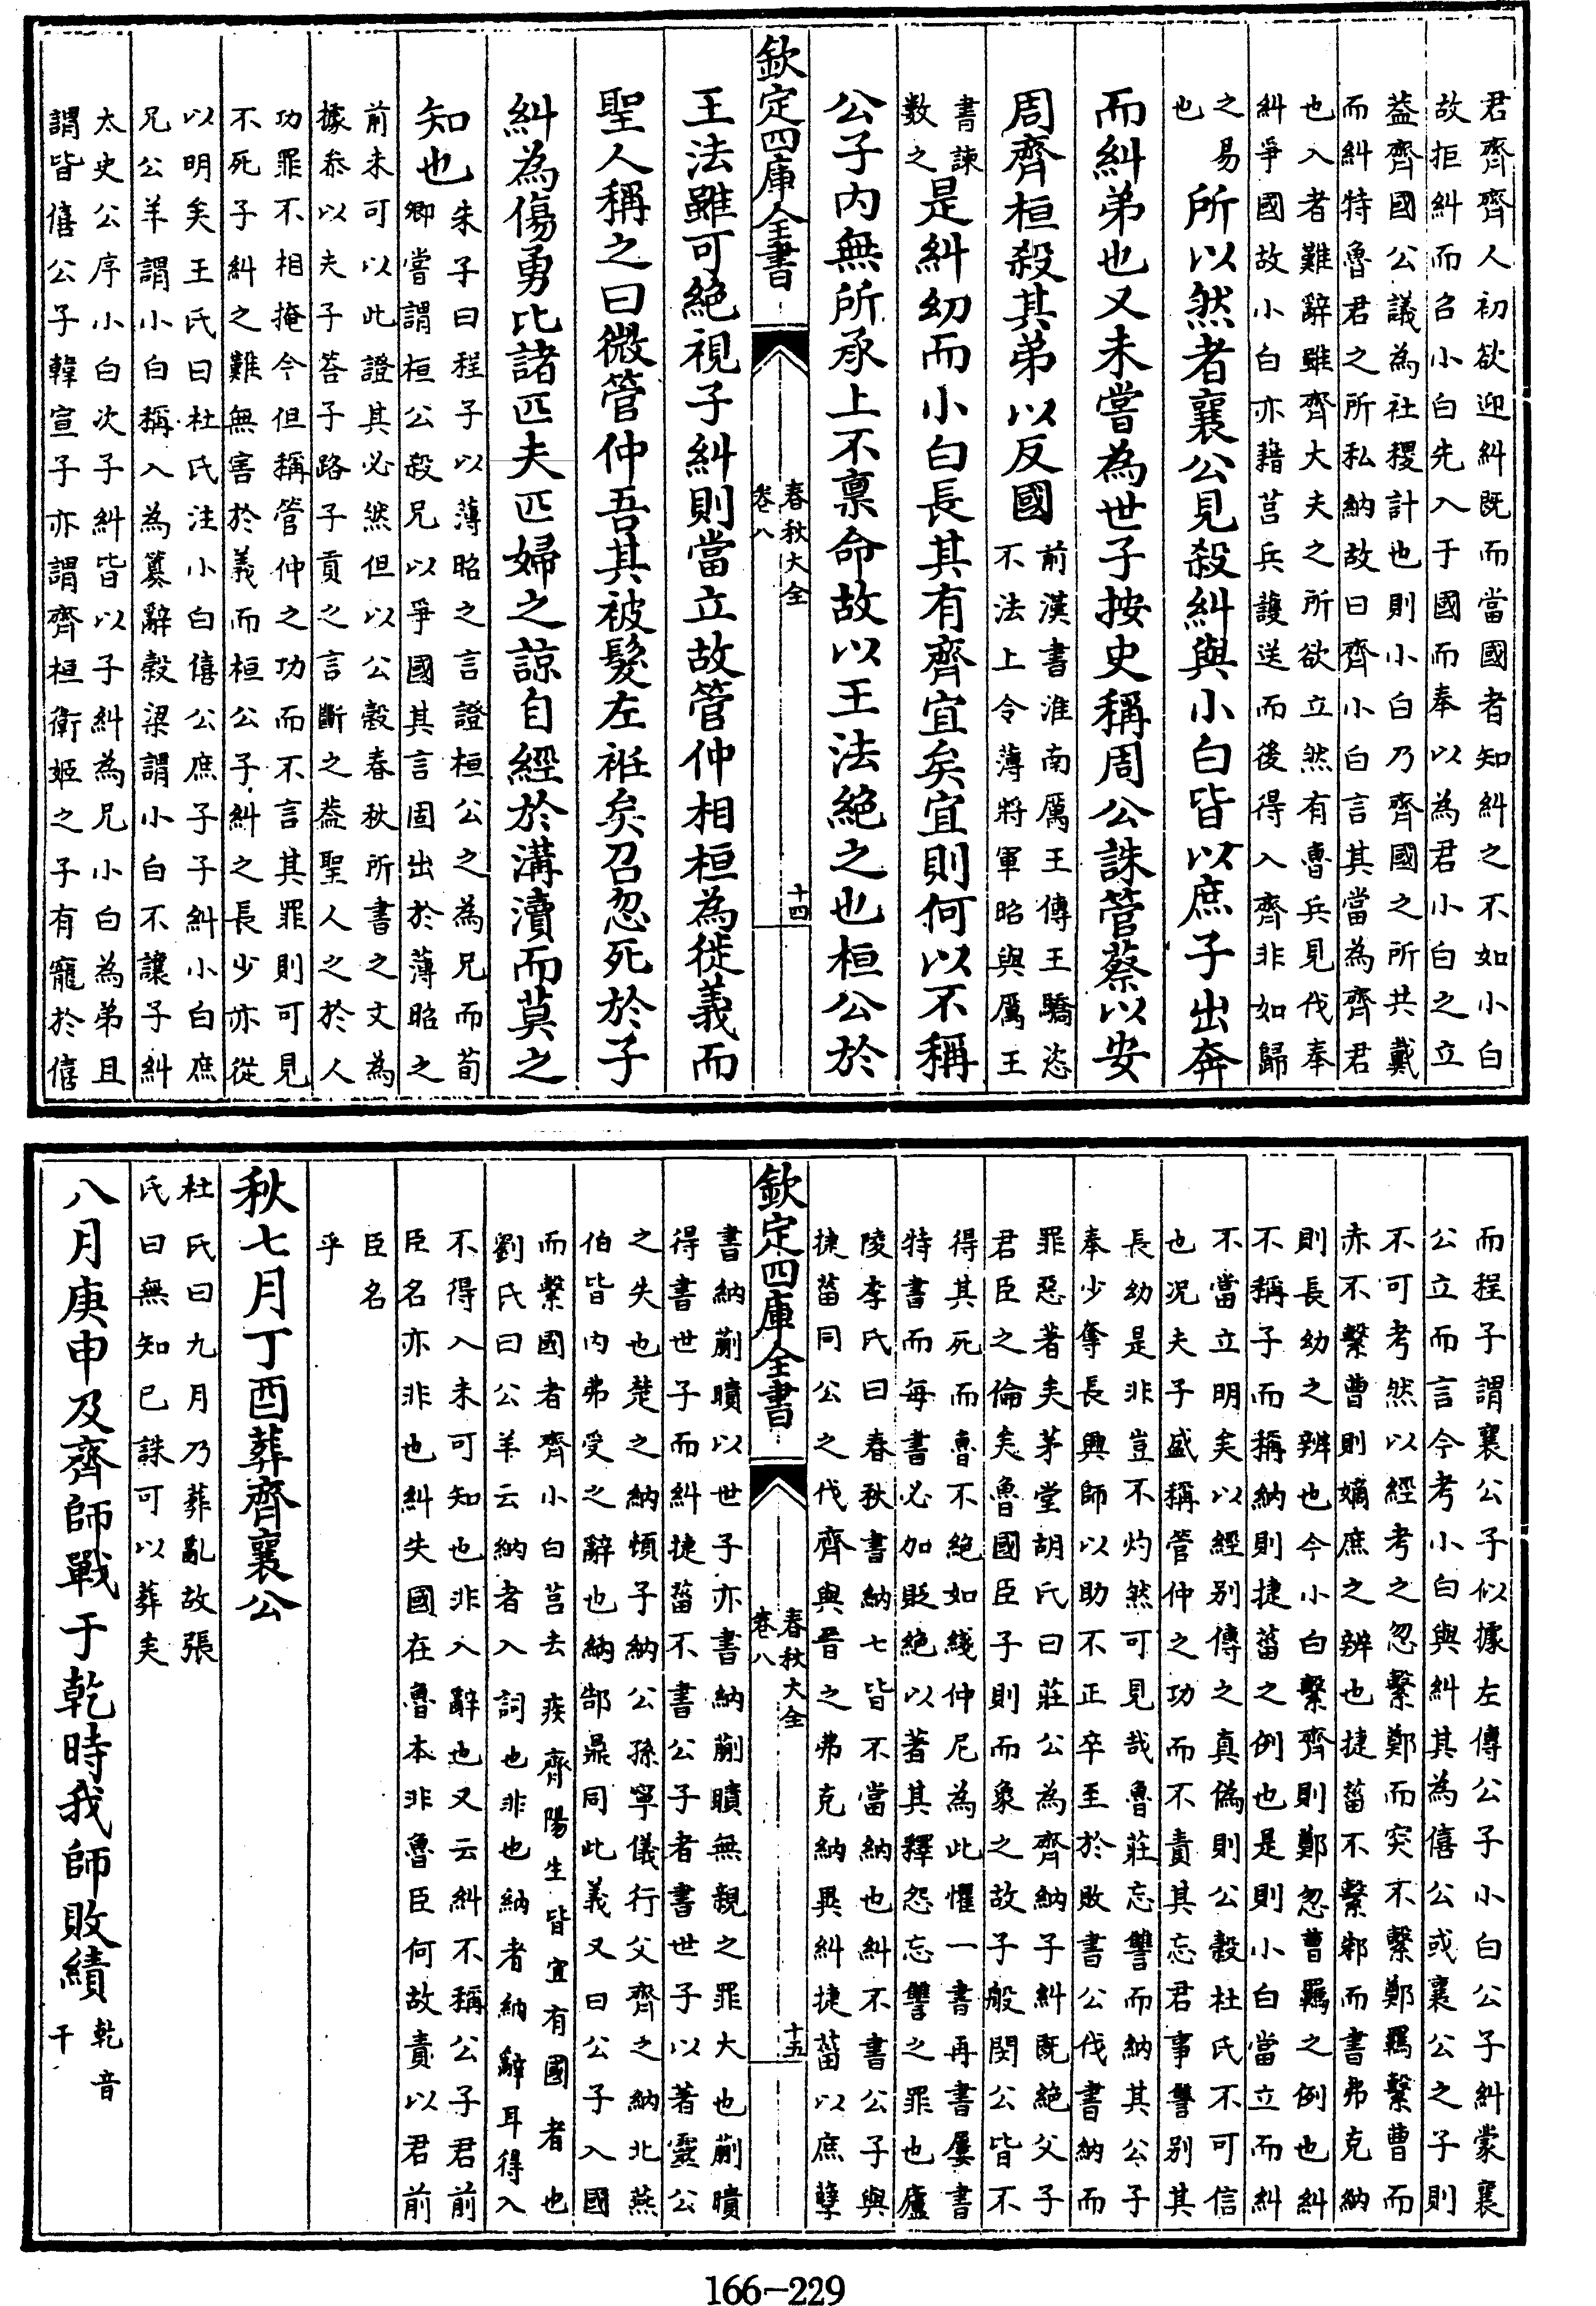 君齊齊人初欲迎糾既而當國者知糾之不如小白
故拒糾而召小白先入于國而奉以為君小白之立
葢齊國公議為社稷計也則小白乃齊國之所共戴
而糾特魯君之所私納故曰齊小白言其當為齊君
也入者難辭雖齊大夫之所欲立然有魯兵見伐奉
糾爭國故小白亦藉莒兵䕶送而後得入齊非如歸
之易
也
所以然者襄公見殺糾與小白皆以庶子出奔
而糾弟也又未嘗為世子按史稱周公誅管蔡以安
周齊桓殺其弟以反國
前漢書淮南厲王傳王驕恣
不法上令薄將軍昭與厲王
書諫
數之
是糾幼而小白長其有齊宜矣宜則何以不稱
公子内無所承上不禀命故以王法絶之也桓公於
欽定四庫全書
春秋大全
卷八
十四
王法雖可絶視子糾則當立故管仲相桓為徙義而
聖人稱之曰微管仲吾其被髮左袵矣召忽死於子
糾為傷勇比諸匹夫匹婦之諒自經於溝瀆而莫之
知也
朱子曰程子以薄昭之言證桓公之為兄而荀
卿嘗謂桓公殺兄以爭國其言固出於薄昭之
前未可以此證其必然但以公糓春秋所書之文為
據叅以夫子荅子路子貢之言斷之葢聖人之於人
功罪不相掩今但稱管仲之功而不言其罪則可見
不死子糾之難無害於義而桓公子糾之長少亦從
以明矣王氏曰杜氏注小白僖公庶子子糾小白庶
兄公羊謂小白稱入為簒辭榖梁謂小白不讓子糾
太史公序小白次子糾皆以子糾為兄小白為弟且
謂皆僖公子韓宣子亦謂齊桓衛姬之子有寵於僖
而程子謂襄公子似據左傳公子小白公子糾蒙襄
公立而言今考小白與糾其為僖公或襄公之子則
不可考然以經考之忽繫鄭而突不繫鄭羈繫曹而
赤不繫曹則嫡庶之辨也捷菑不繫邾而書弗克納
則長幼之辨也今小白繫齊則鄭忽曹羈之例也糾
不稱子而稱納則捷菑之例也是則小白當立而糾
不當立明矣以經别傳之真偽則公糓杜氏不可信
也况夫子盛稱管仲之功而不責其忘君事讐别其
長幼是非豈不灼然可見哉魯莊忘讐而納其公子
奉少奪長興師以助不正卒至於敗書公伐書納而
罪惡著矣茅堂胡氏曰莊公為齊納子糾既絶父子
君臣之倫矣魯國臣子則而象之故子般閔公皆不
得其死而魯不絶如綫仲尼為此懼一書再書屢書
特書而每書必加貶絶以著其釋怨忘讐之罪也廬
陵李氏曰春秋書納七皆不當納也糾不書公子與
捷菑同公之伐齊與晉之弗克納異糾捷菑以庶孽
欽定四庫全書
春秋大全
卷八
十五
書納蒯聵以世子亦書納蒯聵無親之罪大也蒯聵
得書世子而糾捷菑不書公子者書世子以著靈公
之失也楚之納頓子納公孫寧儀行父齊之納北燕
伯皆内弗受之辭也納郜鼎同此義又曰公子入國
而繫國者齊小白莒去疾齊陽生皆宜有國者也
劉氏曰公羊云納者入詞也非也納者納辭耳得入
不得入未可知也非入辭也又云糾不稱公子君前
臣名亦非也糾失國在魯本非魯臣何故責以君前
臣名
乎
秋七月丁酉葬齊襄公
杜氏曰九月乃葬亂故張
氏曰無知已誅可以葬矣
八月庚申及齊師戰于乾時我師敗績
乾音
干
166-229